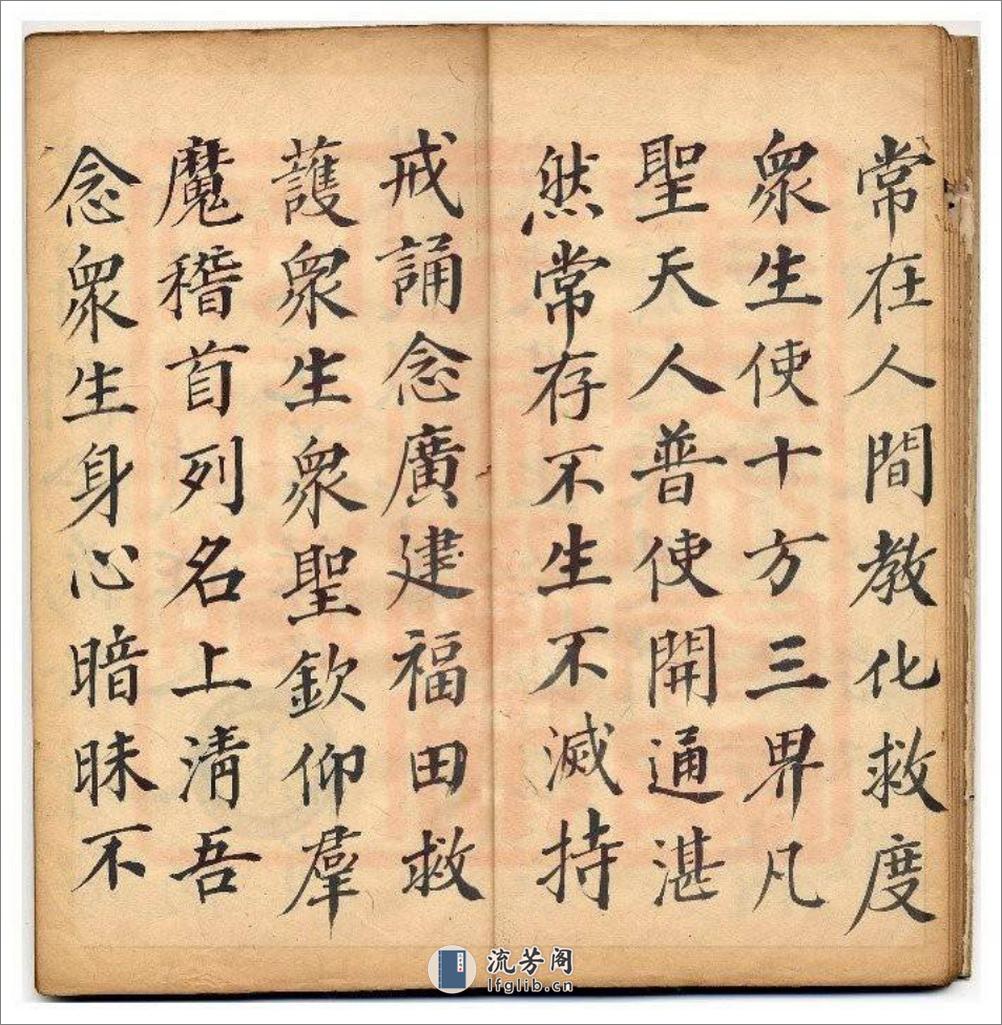 常在人間教化救度
衆生使十方三界凡
聖天人普使開通湛
然常存不生不滅持
戒誦念廣建福田救
護衆生衆聖欽仰羣
魔稽首列名上清吾
念衆生身心暗昧不
流芳阁
lfglib.cn